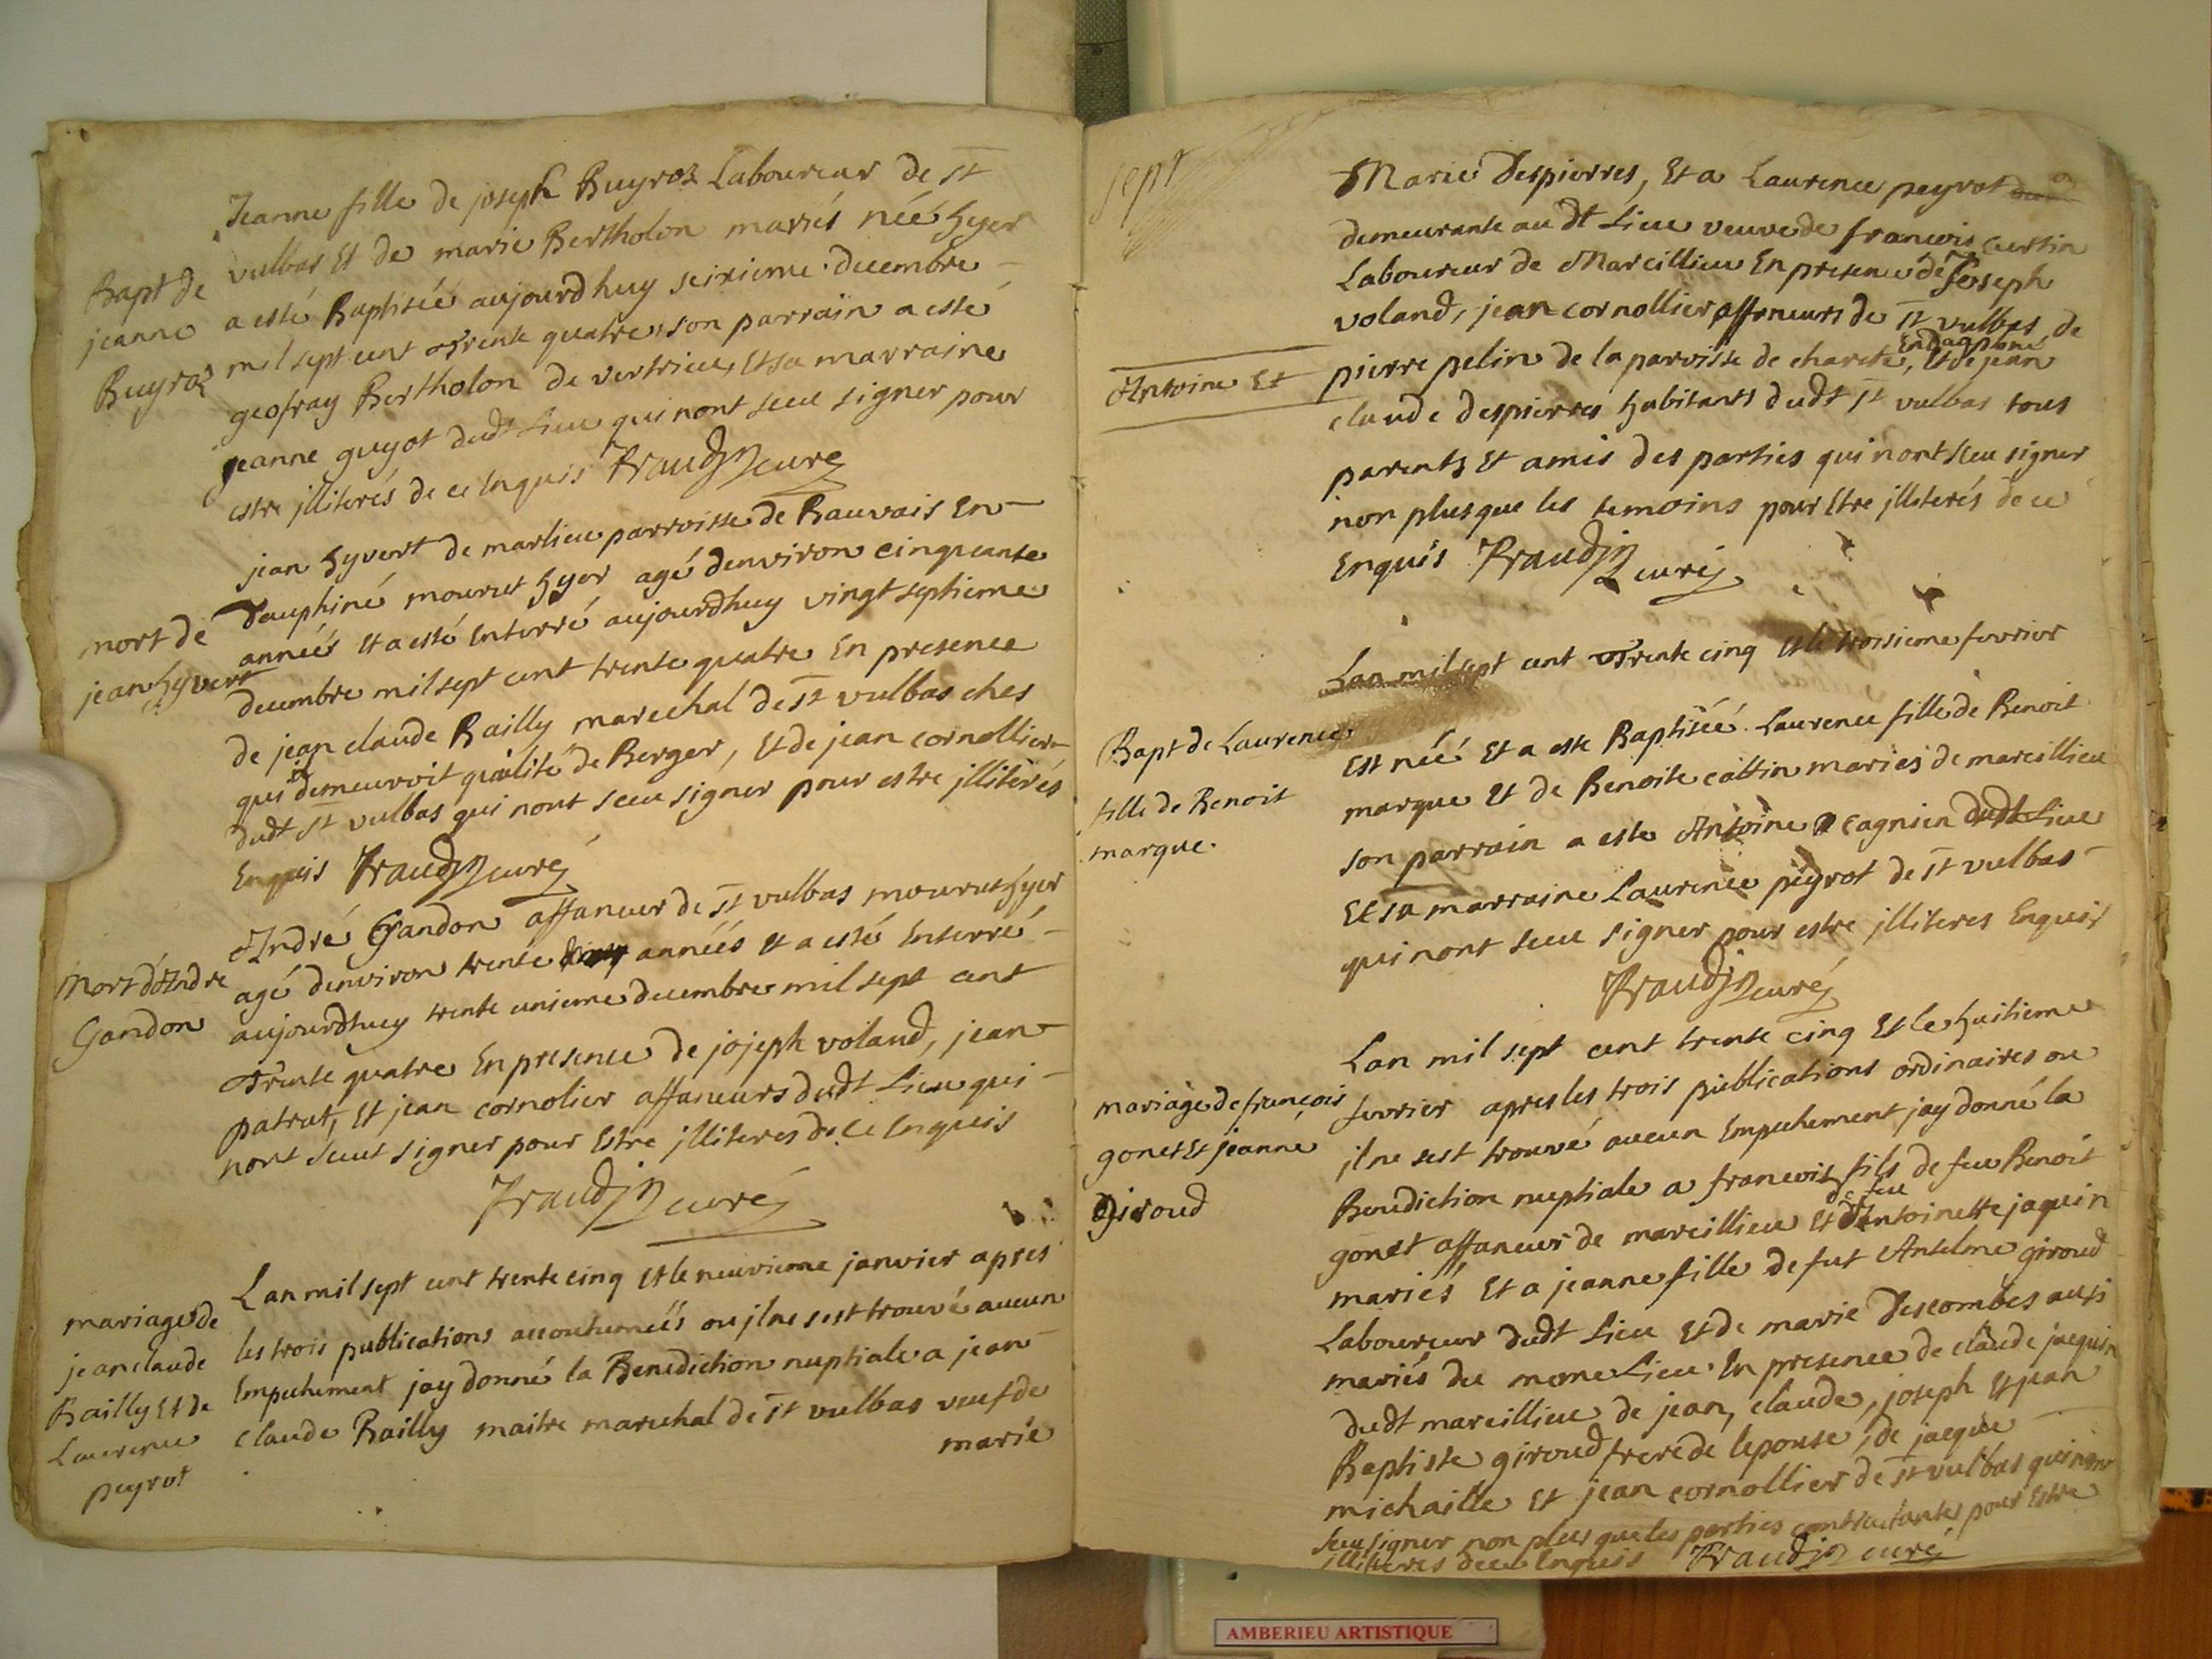 Jeanne fille de joseph Buyroz Laboureur de St
vulbas Et de marie Bertholon mariés néé hyer
Bapt de
jeanne
Buyroz
a esté Baptiséé aujourdhuy seixieme decembre
mil sept cent trente quatre, son parrain a esté
geofray Bertholon de vertrieu, Et sa marraine
jeanne guyot dudt Lieu qui nont sceu signer pour
estre jlliterés de ce Enquis Fraudin curé
jean hyvert de marlieu parroisse de Bauvais En
Dauphiné mourut hyer agé denviron cinquante
mort de
jean hyvert
annéés Et a esté Enterré aujourdhuy vingt septieme
decembre mil sept cent trente quatre En presence
de jean claude Bailly marechal de St vulbas ches
qui il demeuroit qualité de Berger, Et de jean cornollier
dudt St vulbas qui nont sceu signer pour estre jlliterés
Enquis Fraudin curé
André Gandon affaneur de St vulbas mourut hyer
Mort d'Andre
Gandon
agé denviron trente annéés et a esté Enterré
aujourdhuy trente unieme decembre mil sept cent
Trente quatre En presence de joseph voland, jean
patrut, Et jean cornolier affaneurs dudt Lieu qui
nont sceut signer pour Estre jlliteres de ce Enquis
Fraudin curé
Lan mil sept cent trente cinq et le neuvieme janvier apres
mariage de
jean claude
Bailly Et de
Laurence
peyrot
les trois publications accoutuméés ou jl ne sest trouvé aucun
Empechement jay donné la Benediction nuptiale a jean
claude Bailly maitre marechal de St vulbas veuf de
marie
sept
Marie Despierres, Et a Laurence peyrot
demeurante au dt Lieu veuve de francois curtin
Laboureur de Marcillieu En presence de Joseph
voland, jean cornollier affaneurs de St vulbas, de
Antoine Et
pierre pelin de la parroisse de charete, En dauphiné Et de jean
claude Despierres habitants dudt St vulbas tous
parents Et amis des parties qui nont sceu signer
non plus que les temoins pour Etre jlliterés de ce
Enquis Fraudin curé
Lan mil sept cent Trente cinq et le troisieme fevrier
Bapt de Laurence
fille de Benoit
marque.
Est néé Et a este Baptiséé Laurence fille de Benoit
marque Et de Benoite cattin mariés de marcillieu
son parrain a este Antoine cagnien dudt Lieu
Et sa marraine Laurence peyrot de St vulbas
qui nont sceu signer pour estre jlliteres Enquis
Fraudin curé
Lan mil sept cent trente cinq Et le huitieme
mariage de françois
gonet Et jeanne
Giroud
fevrier apres les trois publications ordinaires ou
jl ne sest trouvé aucun Empechement jay donné la
Benediction nuptiale a francois fils de feu Benoit
gonet affaneur de marcillieu Et de feu Antoinette jaquin
mariés Et a jeanne fille de fut Anselme giroud
Laboureur dudt Lieu Et de marie Descombes aussi
mariés du meme Lieu. En presence de claude jacquin
dudt marcillieu de jean, claude, joseph Et jean
Baptiste giroud frere de lepouse, de jacque
michaille Et jean cornollier de St vulbas qui nont
sceu signer non plus que les parties contractantes pour Estre
jlliteres de ce Enquis Fraudin curé
AMBERIEU ARTISTIQUE